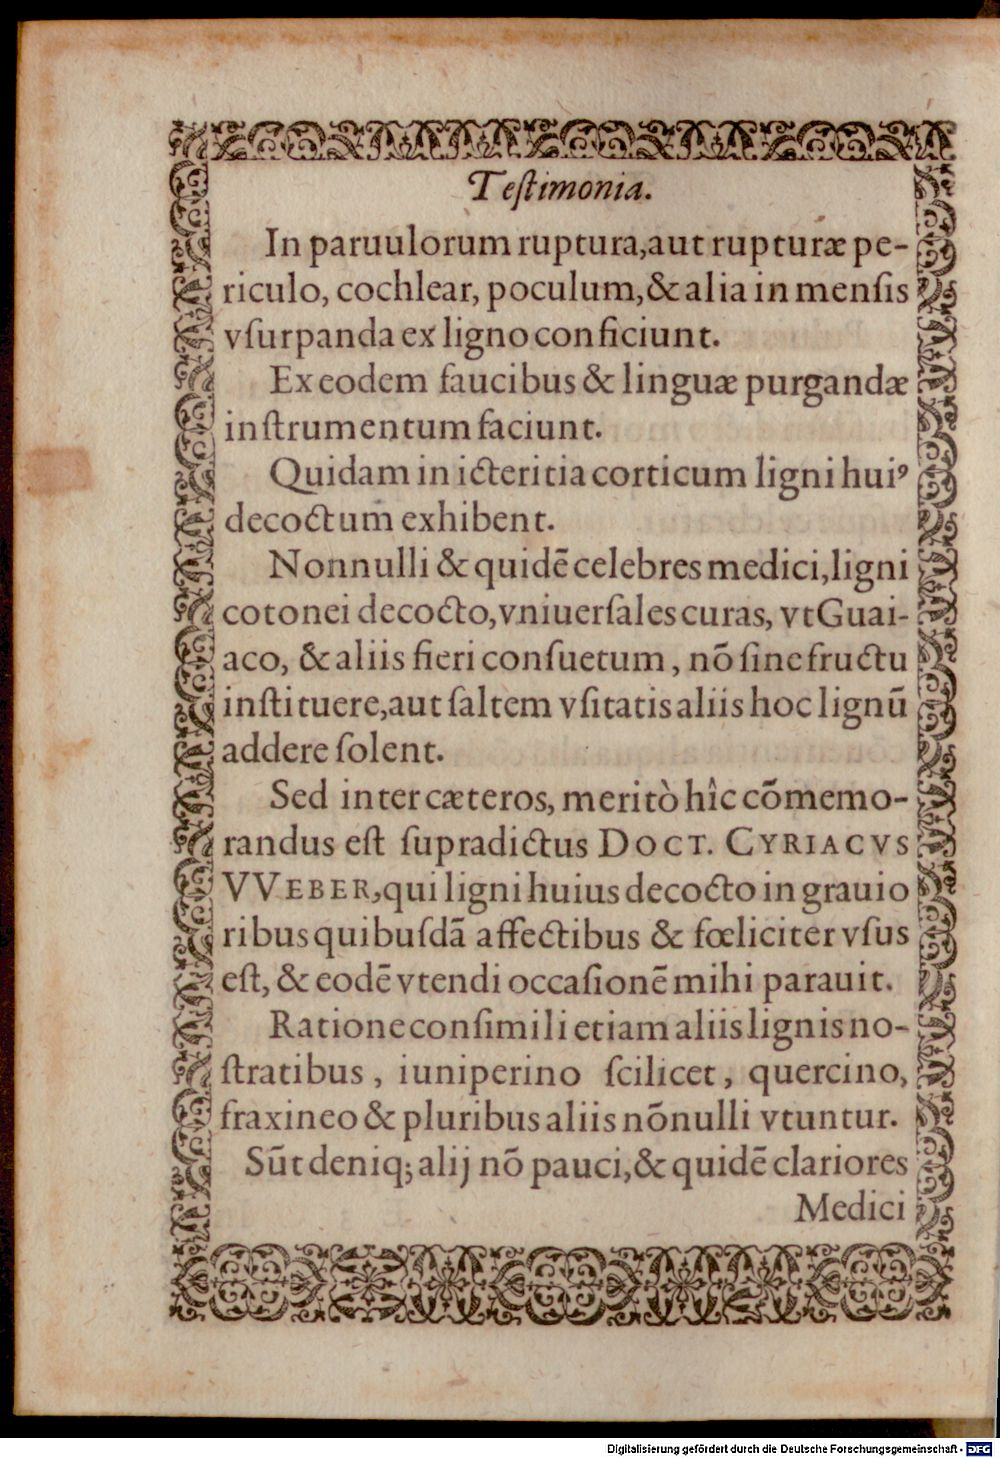 Teſtimonia.
In paruulorum ruptura, aut rupturæ pe-
riculo, cochlear, poculum, & alia in menſis
vſurpanda ex ligno conficiunt.
Ex eodem faucibus & linguæ purgandæ
inſtrumentum faciunt.
Quidam in icteritia corticum ligni huiꝰ
decoctum exhibent.
Nonnulli & quidē celebres medici, ligni
cotonei decocto, vniuerſales curas, vt Guai-
aco, & aliis fieri conſuetum, nō ſine fructu
inſtituere, aut ſaltem vſitatis aliis hoc lignū
addere ſolent.
Sed inter cæteros, meritò hîc cōmemo-
randus eſt ſupradictus DOCT. CYRIACVS
VVEBER, qui ligni huius decocto in grauio
ribus quibuſdā affectibus & fœliciter vſus
eſt, & eodē vtendi occaſionē mihi parauit.
Ratione conſimili etiam aliis lignis no-
ſtratibus, iuniperino ſcilicet, quercino,
fraxineo & pluribus aliis nōnulli vtuntur.
Sūt deniq; alij nō pauci, & quidē clariores
Medici
Digitalisierung gefördert durch die Deutsche Forschungsgemeinschaft - DFG